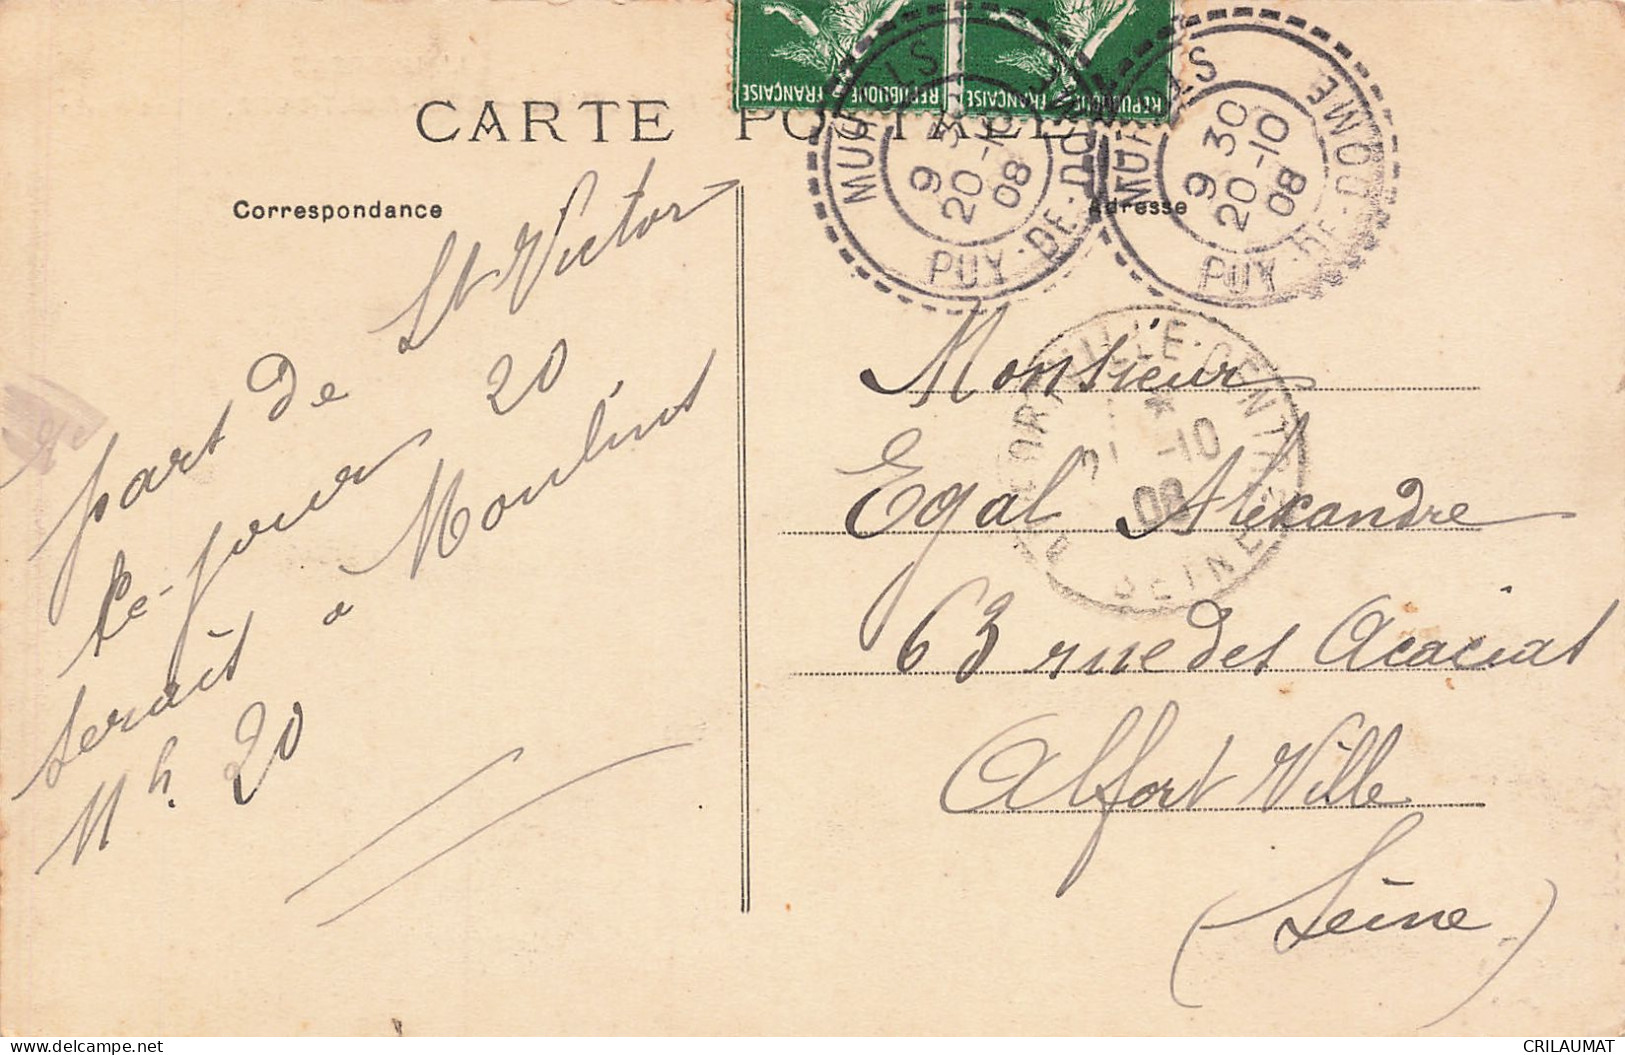 CARTE POSTALE
REPUBLIQUE FRANÇAISE
REPUBLIQUE FRANÇAISE
MUROLS
9 30
20-10
08
PUY-DE-DOME
MUROLS
9 30
20-10
08
PUY-DE-DOME
Correspondance
Adresse
part de St Victor
ce-jour 20
serait à Moulins
11 h. 20
ALFORTVILLE-CENTRE
21 -10
08
SEINE
Monsieur
Egal Alexandre
63 rue des Acacias
Alfort Ville
(Seine)
CRILAUMAT
delcampe.net